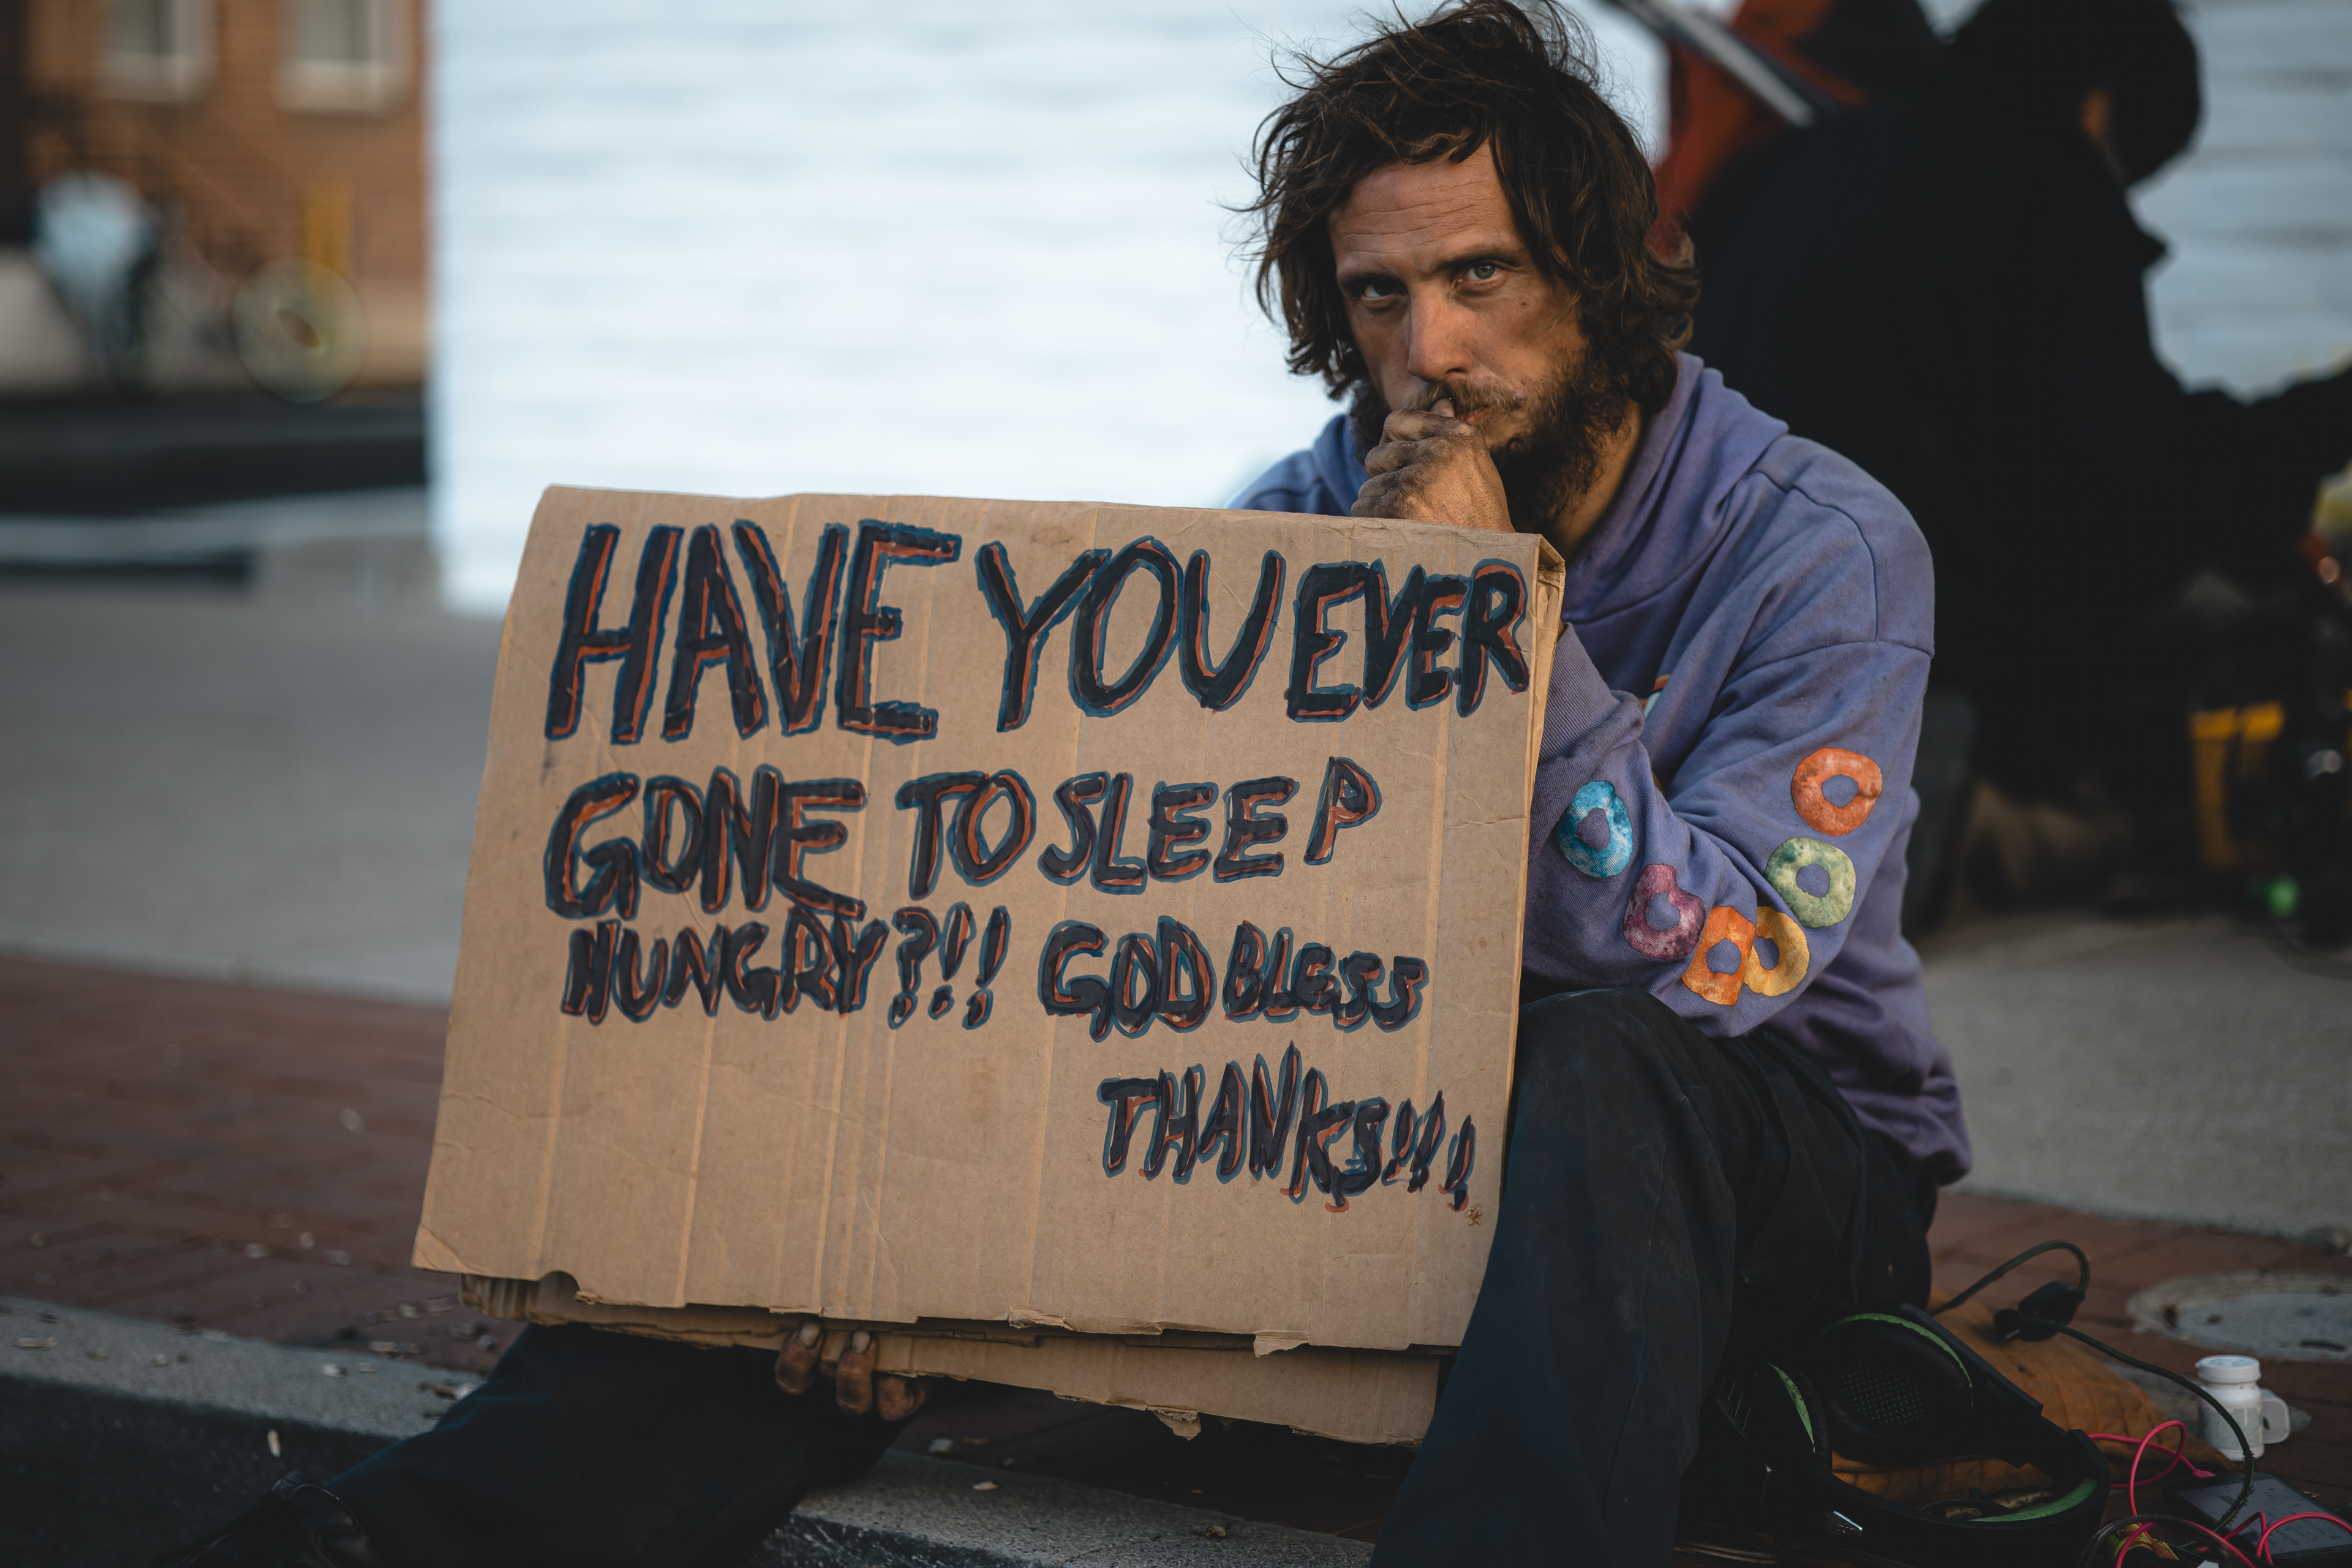 HAVE YOU EVER
GONE TO SLEEP
HUNGRY?!! GOD BLESS
THANKS!!!